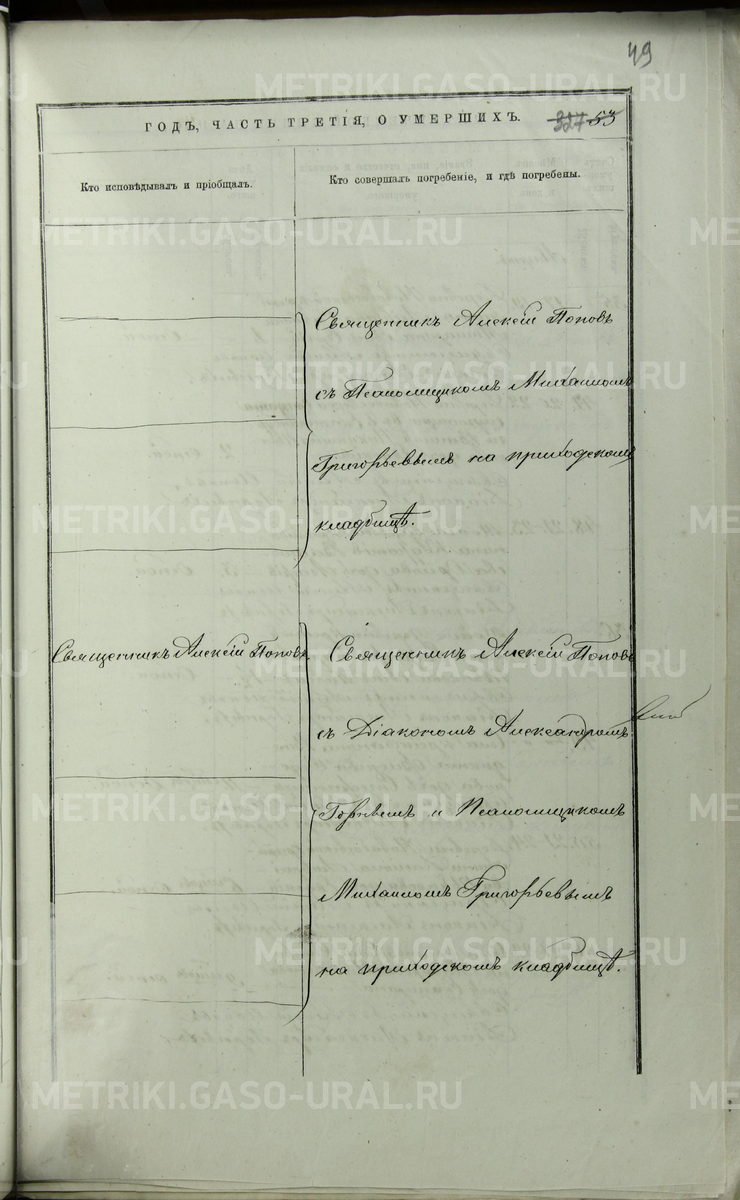 49
ГОДЪ, ЧАСТЬ ТРЕТІЯ, О УМЕРШИХЪ.
327 53
Кто исповѣдывалъ и пріобщалъ.
Кто совершалъ погребеніе, и гдѣ погребены.
Священникъ Алексѣй Поповъ
съ Псаломщикомъ Михаиломъ
Григорьевымъ на приходскомъ
кладбищѣ.
Священникъ Алексѣй Поповъ
Священникъ Алексѣй Поповъ
съ Діакономъ Александромъ
и Псаломщикомъ
Михаиломъ Григорьевымъ
на приходскомъ кладбищѣ.
METRIKI.GASO-URAL.RU